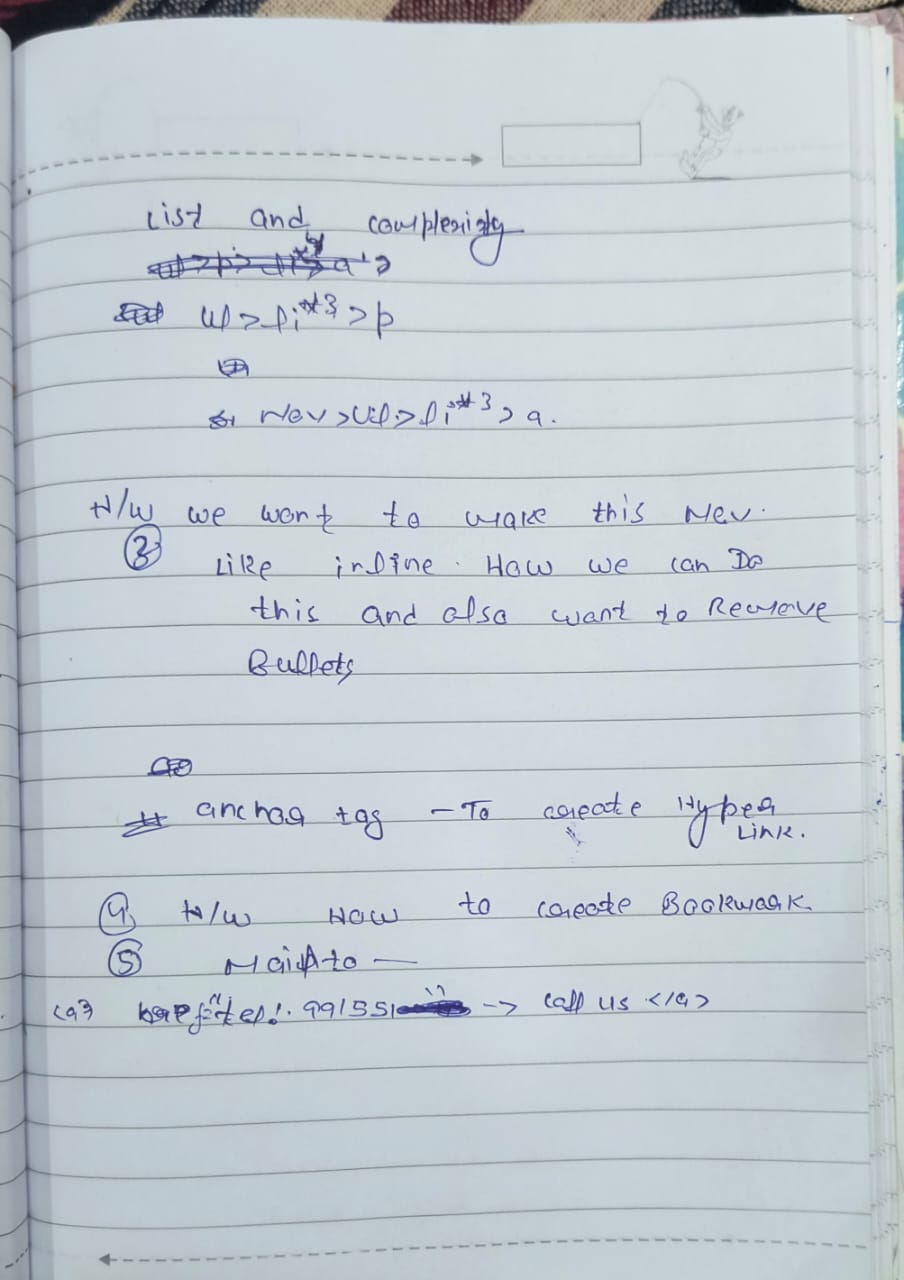 List and complexity
ul>li*3>p
Nev>Ul>li*3>a.
H/W we wont to make this Nev.
③ Like inline. How we can Do
this and also want to Remove
Bullets
# anchor tag - To create Hyper
Link.
④ H/W How to create Bookmark.
⑤ Mailto —
<a> href="tel: 991551 " -> call us </a>